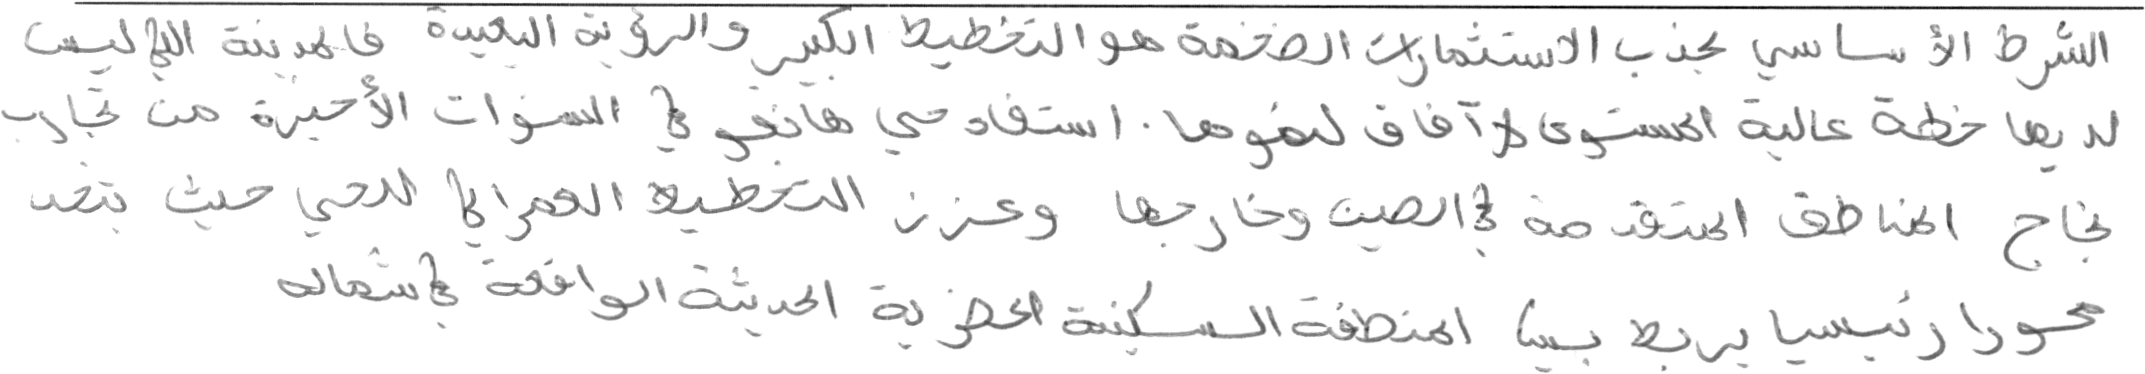 الشرط الأساسي لجذب الاستثمارات الضخمة هو التخطيط الكبير والرؤية البعيدة فالمدينة التي ليست
لديها خطة عالية المستوى لا آفاق لنموها. استفاد حي هانغو في السنوات الأخيرة من تجارب
نجاح المناطق المتقدمة في الصين وخارجها وعزز التخطيط العمراني للحي حيث يتخذ
محورا رئيسيا يربط بين المنطقة السكنية الحضرية الحديثة الواقعة في شماله